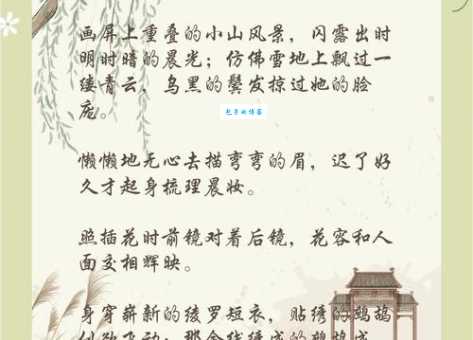 画屏上重叠的小山风景，闪露出时
明时暗的晨光；仿佛雪地上飘过一
缕青云，乌黑的鬓发掠过她的脸
庞。
懒懒地无心去描弯弯的眉，迟了好
久才起身梳理晨妆。
照插花时前镜对着后镜，花容和人
面交相辉映。
身穿崭新的绫罗短衣，贴绣的鹧鸪